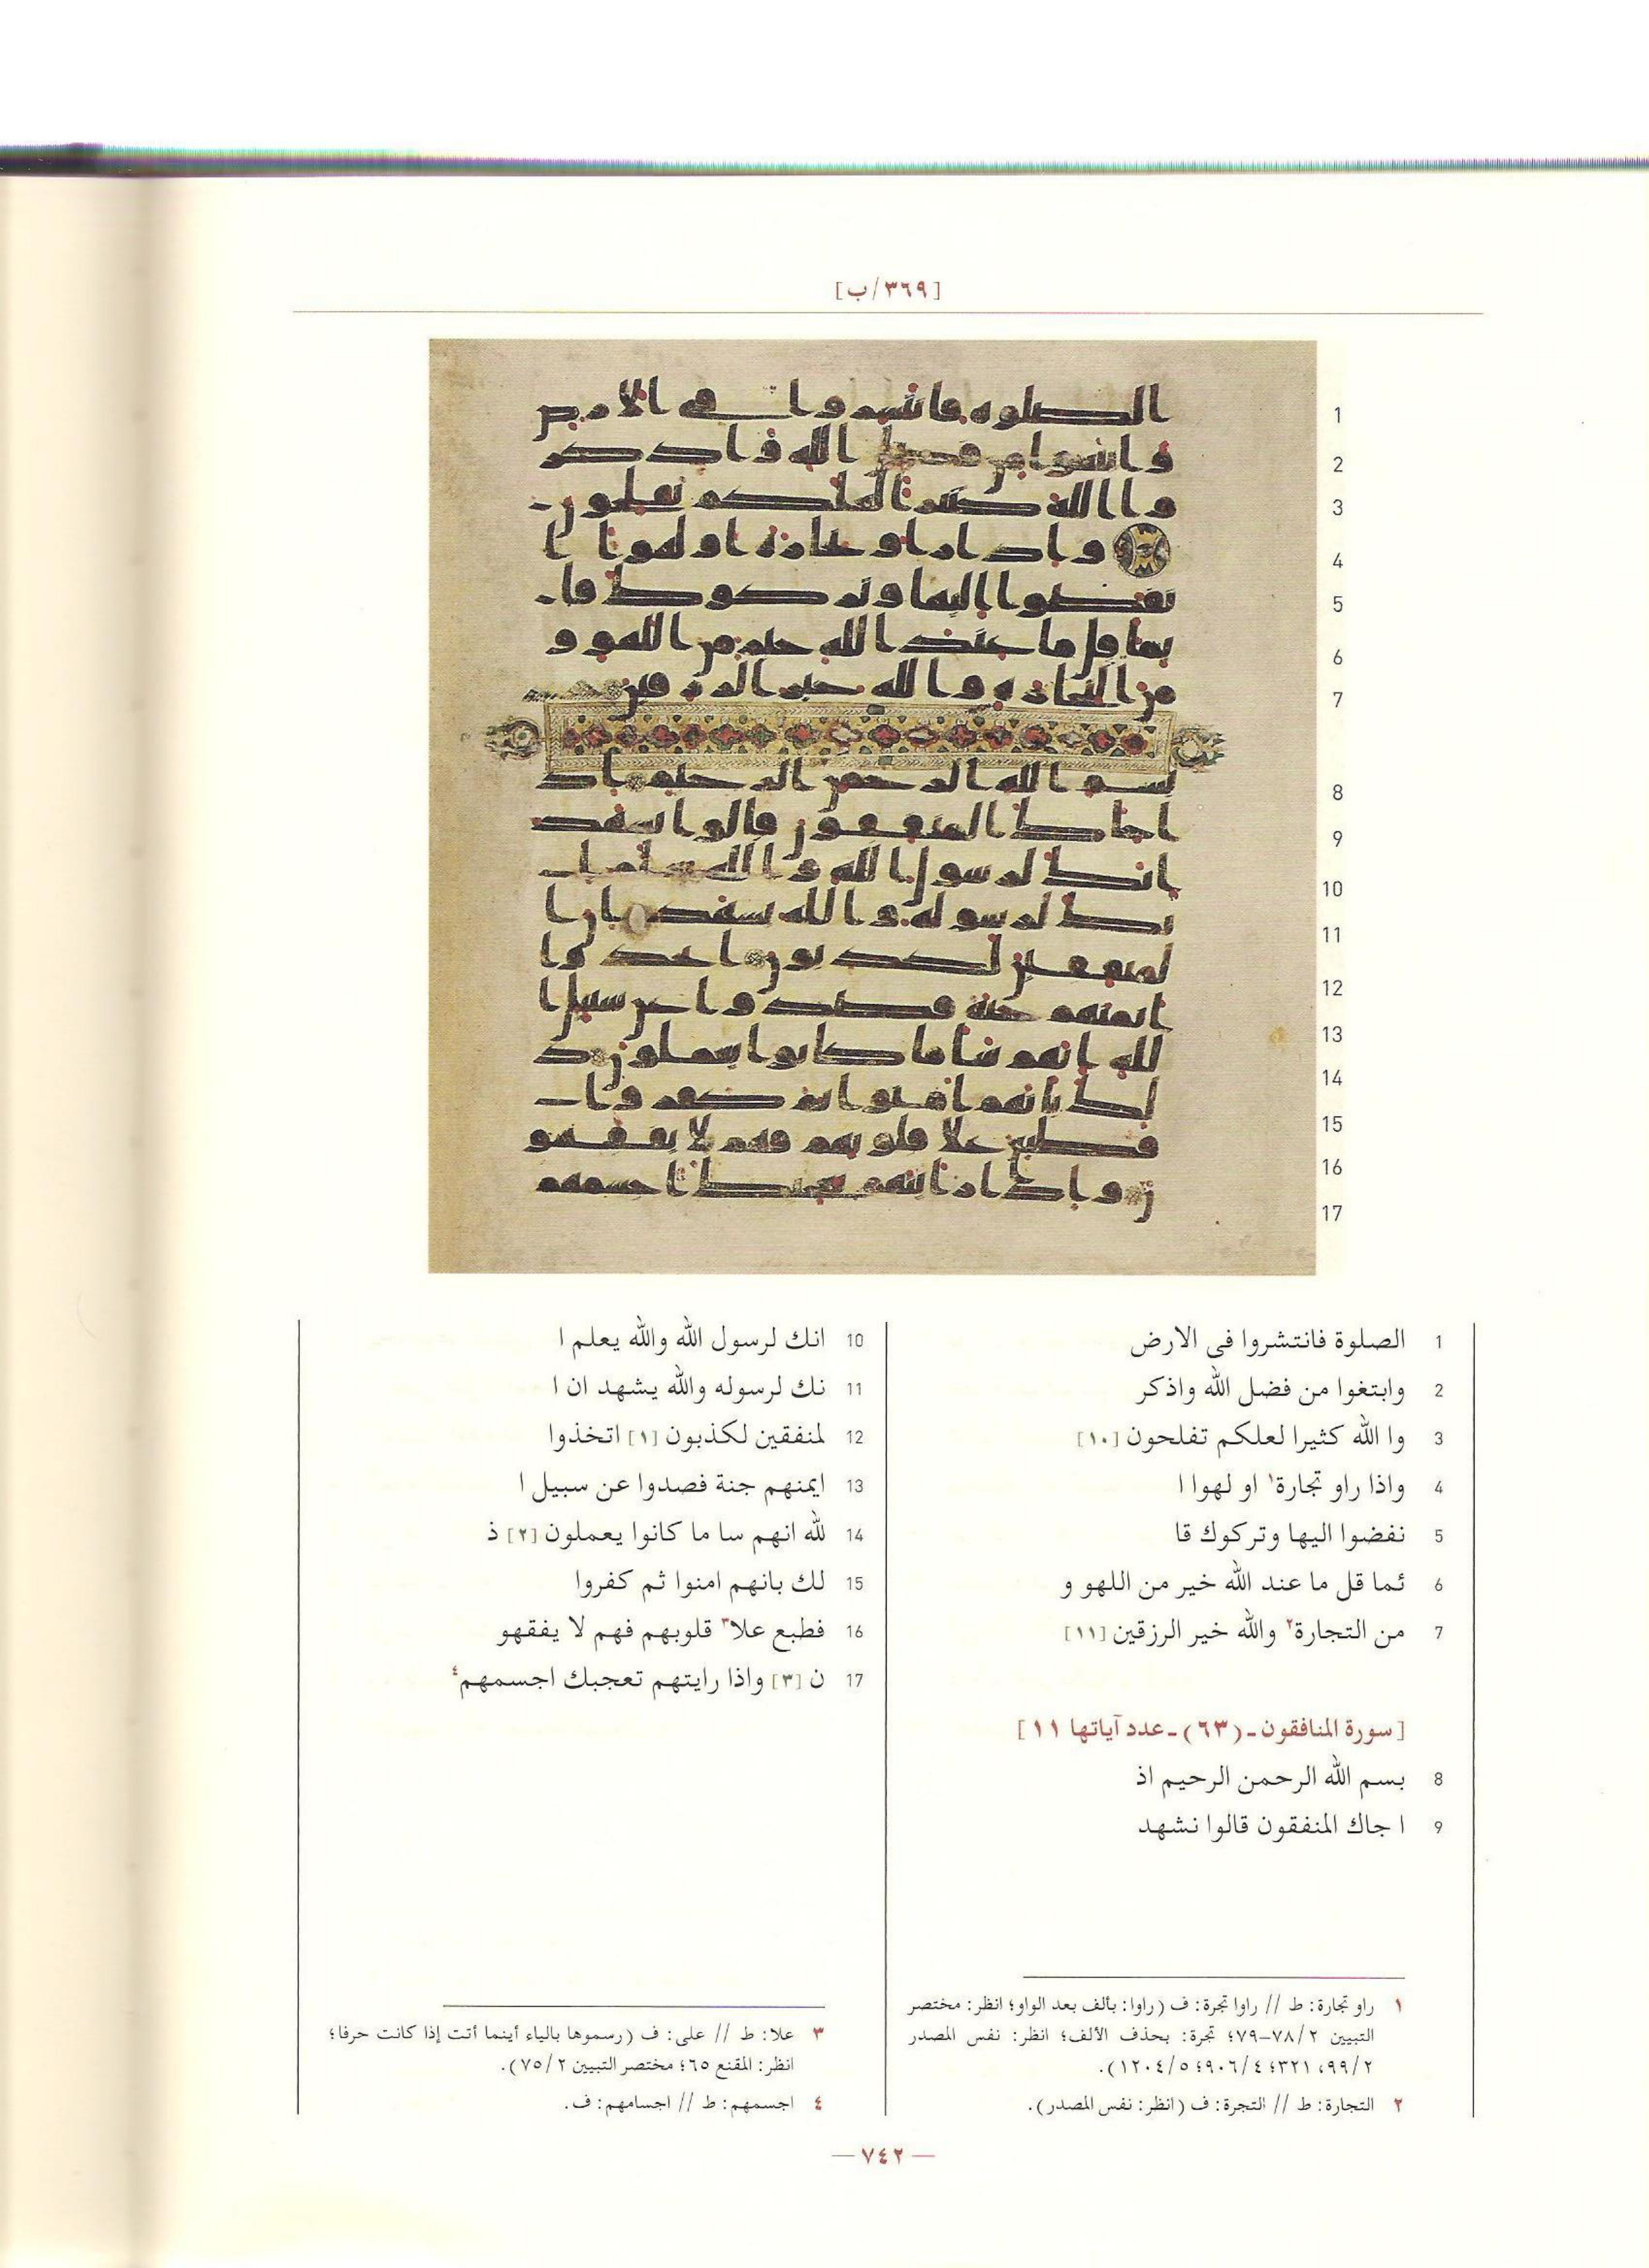 [٣٦٩/ب]
1
2
3
4
5
6
7
8
9
10
11
12
13
14
15
16
17
1 الصلوة فانتشروا فى الارض
2 وابتغوا من فضل الله واذكر
3 وا الله كثيرا لعلكم تفلحون [١٠]
4 واذا راو تجارة١ او لهوا ا
5 نفضوا اليها وتركوك قا
6 ئما قل ما عند الله خير من اللهو و
7 من التجارة٢ والله خير الرزقين [١١]
[سورة المنافقون ـ (٦٣) ـ عدد آياتها ١١]
8 بسم الله الرحمن الرحيم اذ
9 ا جاك المنفقون قالوا نشهد
10 انك لرسول الله والله يعلم ا
11 نك لرسوله والله يشهد ان ا
12 لمنفقين لكذبون [١] اتخذوا
13 ايمنهم جنة فصدوا عن سبيل ا
14 لله انهم سا ما كانوا يعملون [٢] ذ
15 لك بانهم امنوا ثم كفروا
16 فطبع علا٣ قلوبهم فهم لا يفقهو
17 ن [٣] واذا رايتهم تعجبك اجسمهم٤
١ راو تجارة: ط // راوا تجرة: ف (راوا: بألف بعد الواو؛ انظر: مختصر
التبيين ٢/٧٨–٧٩؛ تجرة: بحذف الألف؛ انظر: نفس المصدر
٢/٩٩، ٣٢١؛ ٤/٩٠٦؛ ٥/١٢٠٤).
٢ التجارة: ط // التجرة: ف (انظر: نفس المصدر).
٣ علا: ط // على: ف (رسموها بالياء أينما أتت إذا كانت حرفا؛
انظر: المقنع ٦٥؛ مختصر التبيين ٢/٧٥).
٤ اجسمهم: ط // اجسامهم: ف.
— ٧٤٢ —